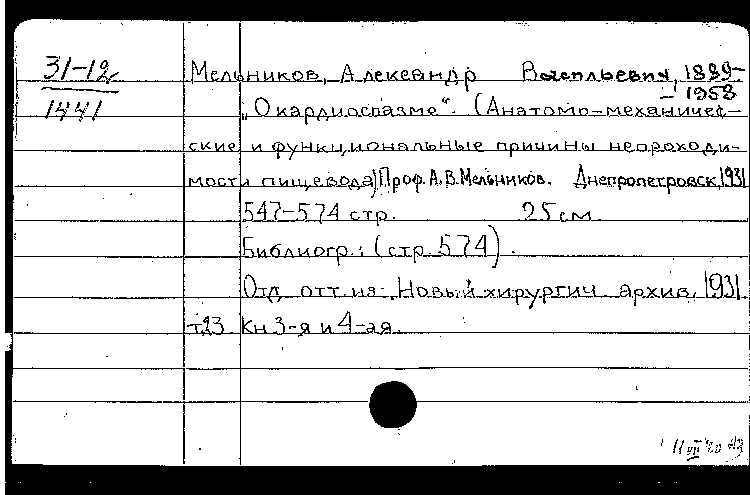 31-12
1441
Мельников, Александр Васильевич, 1889-
-1958
„О кардиоспазме“. (Анатомо-механичес-
ские и функциональные причины непроходи-
мости пищевода) Проф. А.В. Мельников. Днепропетровск, 1931
547-574 стр. 25 см.
Библиогр.: (стр. 574).
Отд. отт. из: Новый хирургич архив, 1931.
т.23. Кн 3-я и 4-ая.